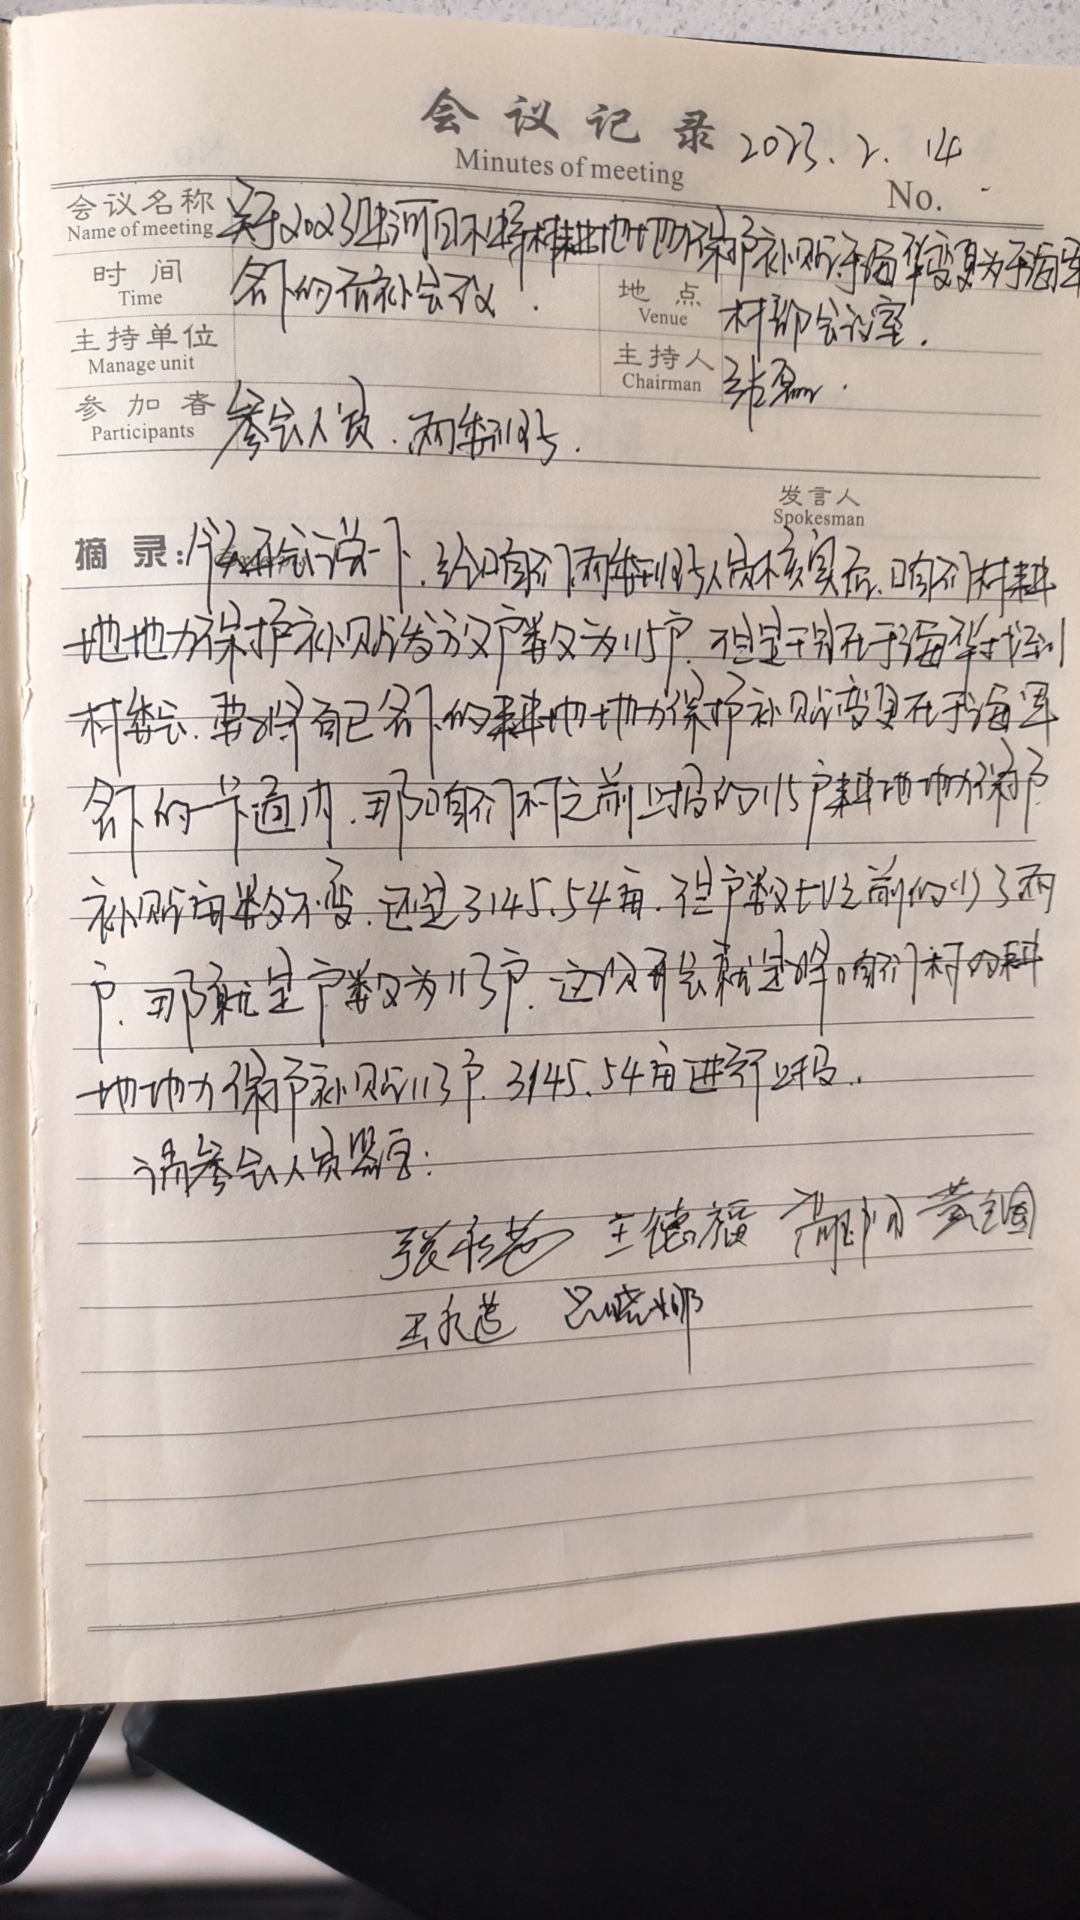 会议记录 2023.2.14
Minutes of meeting
No.
会议名称 关于2023年河日村耕地地力保护补贴于海华变更为于海军
Name of meeting
时间 名下的会议.
Time
地点 村部会议室.
Venue
主持单位
Manage unit
主持人 张磊.
Chairman
参加者 参会人员.两委干部.
Participants
发言人
Spokesman
摘录: 今天开会说一下.经咱们两委干部人员核实后.咱们村耕
地地力保护补贴发放户数为115户.但是于海华找到
村委会.要将自己名下的耕地地力保护补贴变更在于海军
名下的一卡通内.那咱们村之前上报的115户耕地地力保护
补贴亩数不变.还是3145.54亩.但户数比之前的少了两
户.那就是户数为113户.这次开会就是将咱们村的耕
地地力保护补贴113户.3145.54亩进行上报.
请参会人员签字:
王德福 黄
王 吕晓娜